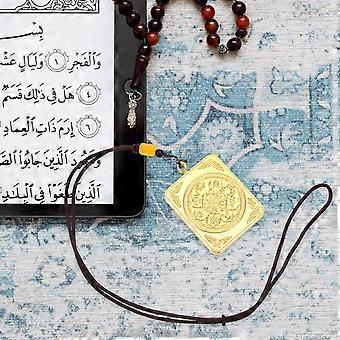 بِسْ
وَالْفَجْرِ ١ وَلَيَالٍ عَشْ
٤ هَلْ فِي ذَٰلِكَ قَسَمٌ
٦ إِرَمَ ذَاتِ الْعِمَادِ
وَثَمُودَ الَّذِينَ جَابُوا الصَّ
الَّذِينَ طَغَوْا فِي الْبِلَٰدِ